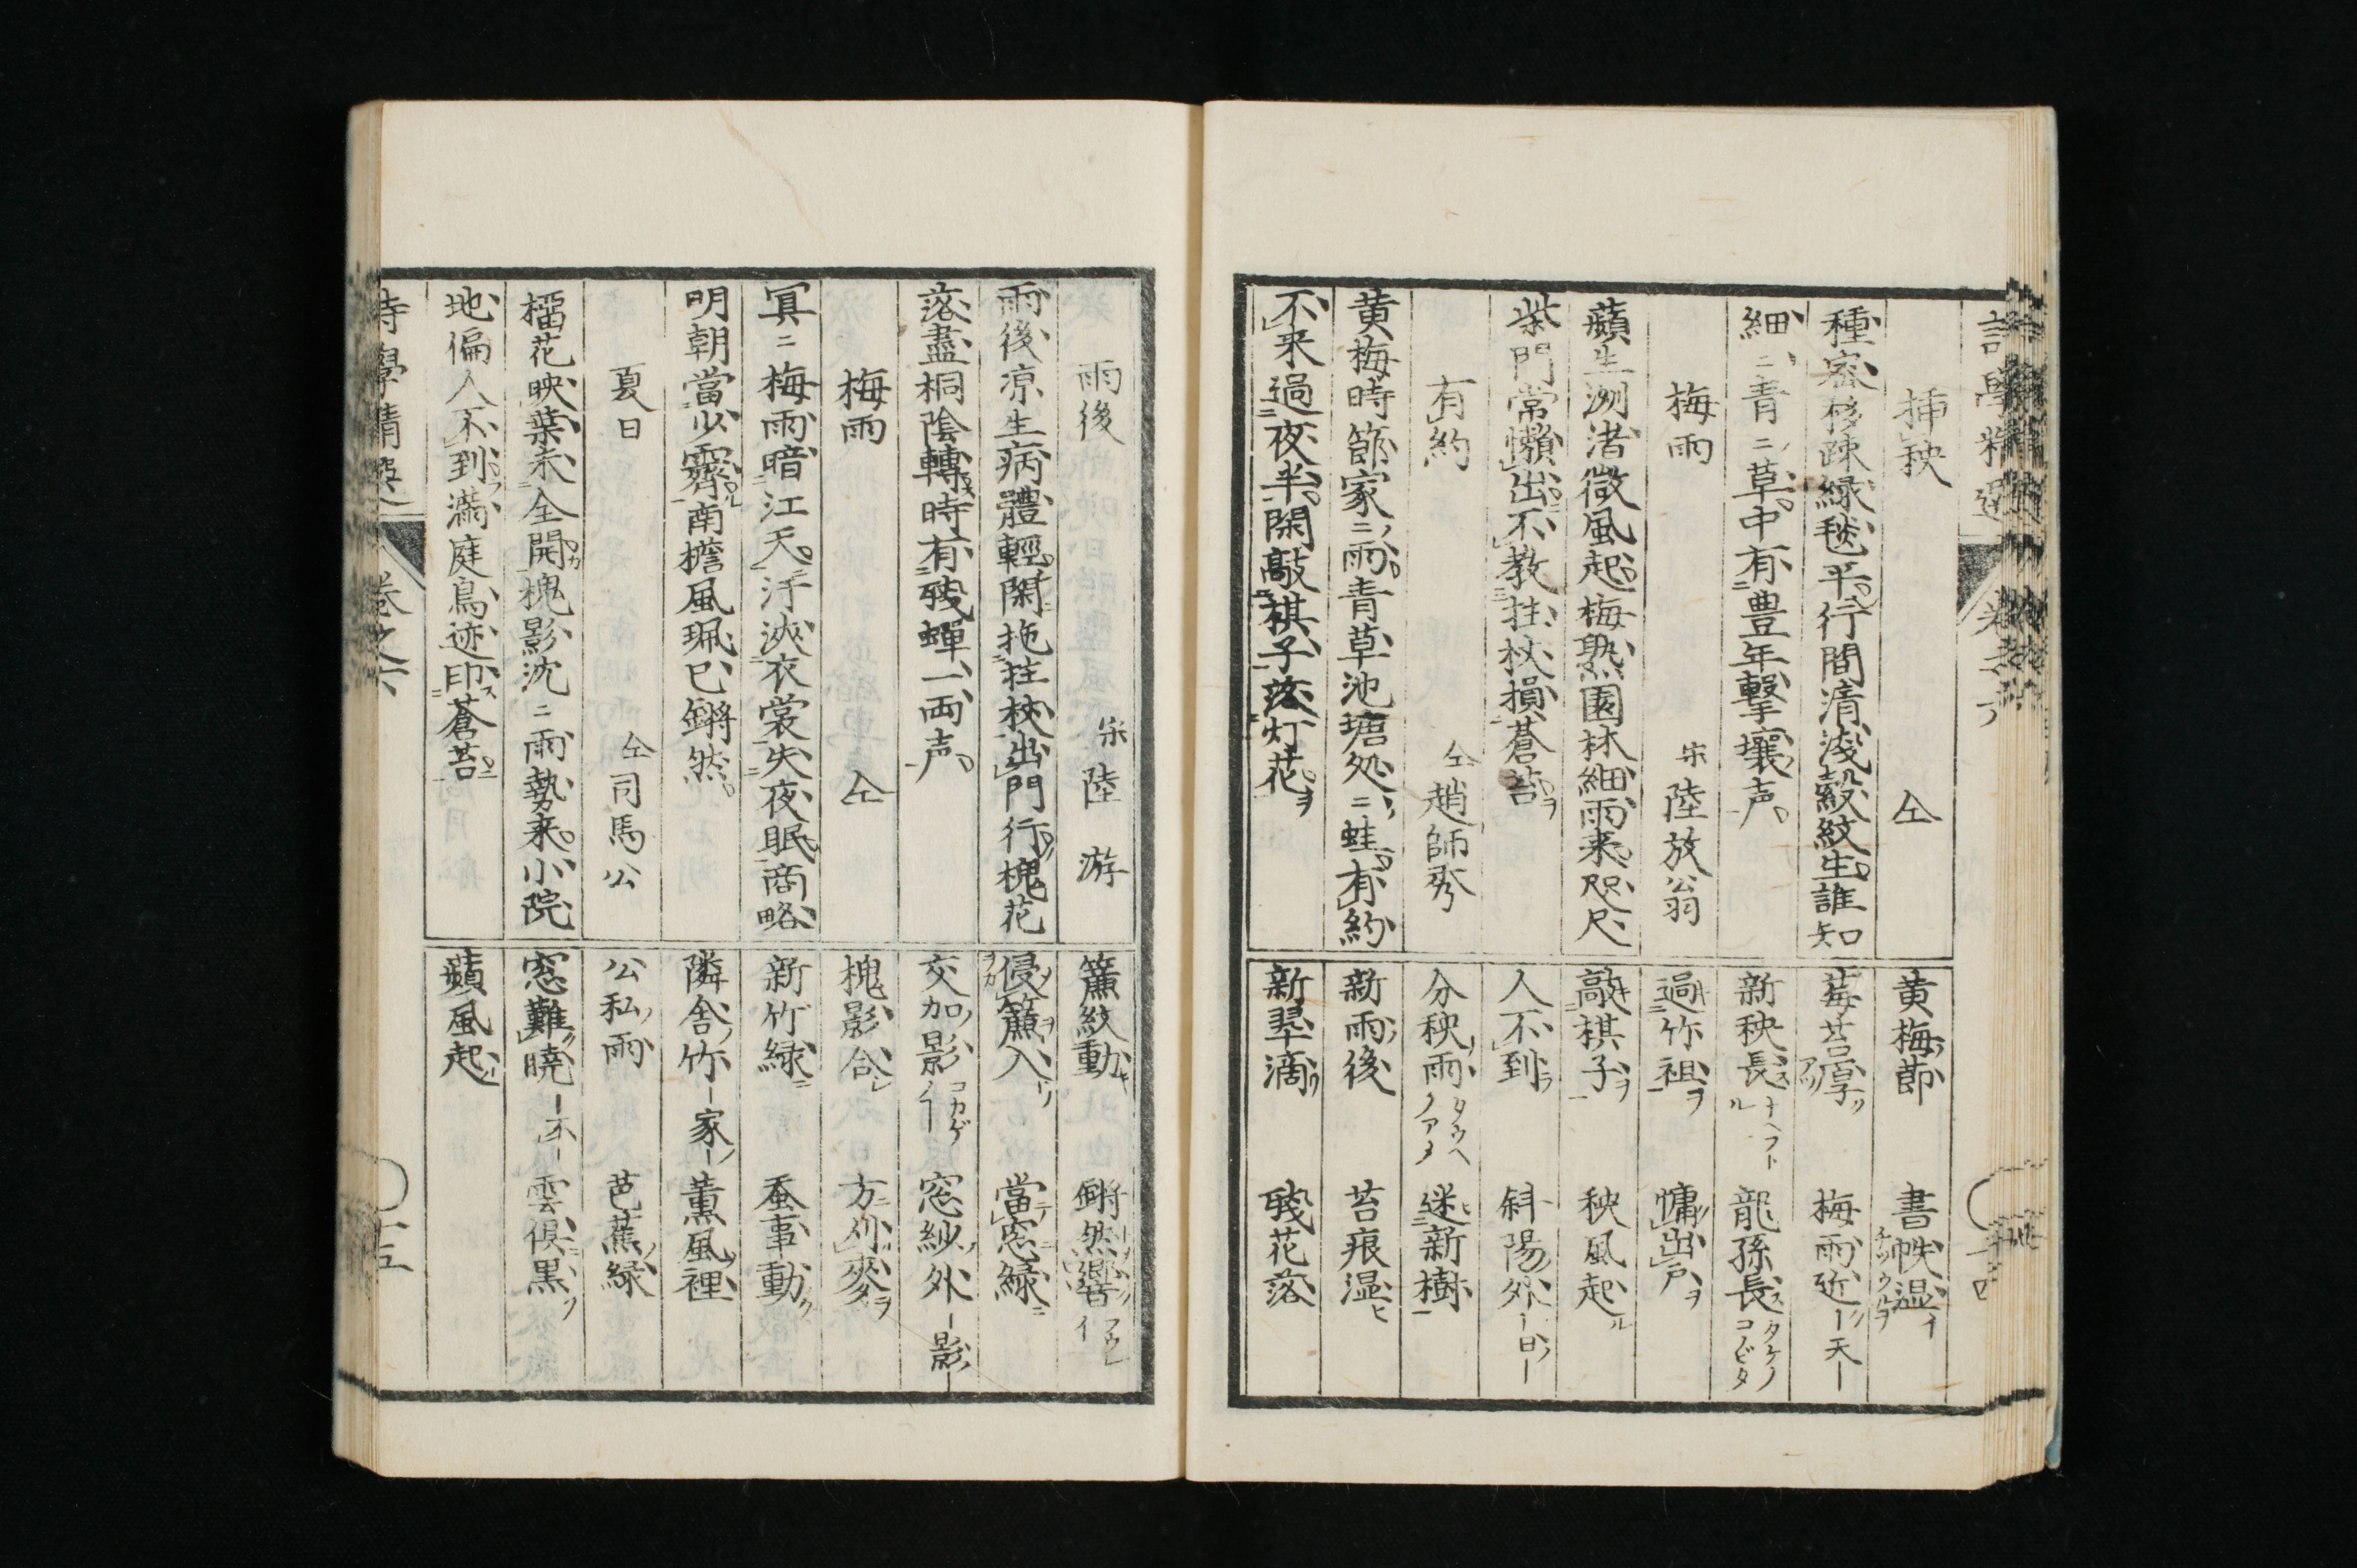 挿秧　仝
種密移疎緑毯平行間清浅縠紋生誰知
細ニ青ニ草中有豊年撃壌声
梅雨　宋陸放翁
蘋生洲渚微風起梅熟園林細雨来咫尺
柴門常懶出不教拄杖損蒼苔
有約　仝趙師秀
黄梅時節家ニ雨青草池塘処ニ蛙有約
不来過夜半閑敲棋子落灯花
黄梅節　書帙湿
莓苔厚　梅雨近ー天ー
新秧長　龍孫長
過竹祖　慵出戸
敲棋子　秧風起
人不到　斜陽外ー日ー
分秧雨　迷新樹
新雨後　苔痕湿
新翠滴　残花落
雨後　宋陸游
雨後凉生病體輕閑拖拄杖出門行槐花
落盡桐陰轉時有残蟬一両声
梅雨　仝
冥ニ梅雨暗江天汗浹衣裳失夜眠商略
明朝當少霽南檐風珮已鏘然
夏日　仝司馬公
榴花映葉未全開槐影沈ニ雨勢来小院
地偏人不到滿庭鳥迹印蒼苔
簾紋動　鏘然響
侵簾入　當窓緑
交加影　窓紗外ー影ー
槐影合　方刈麥
新竹緑　蚕事動
隣舎竹ー家ー　薫風裡
公私雨　芭蕉緑
窓難暁ー不ー　雲倶黒
蘋風起
詩學精選　卷之六　十五